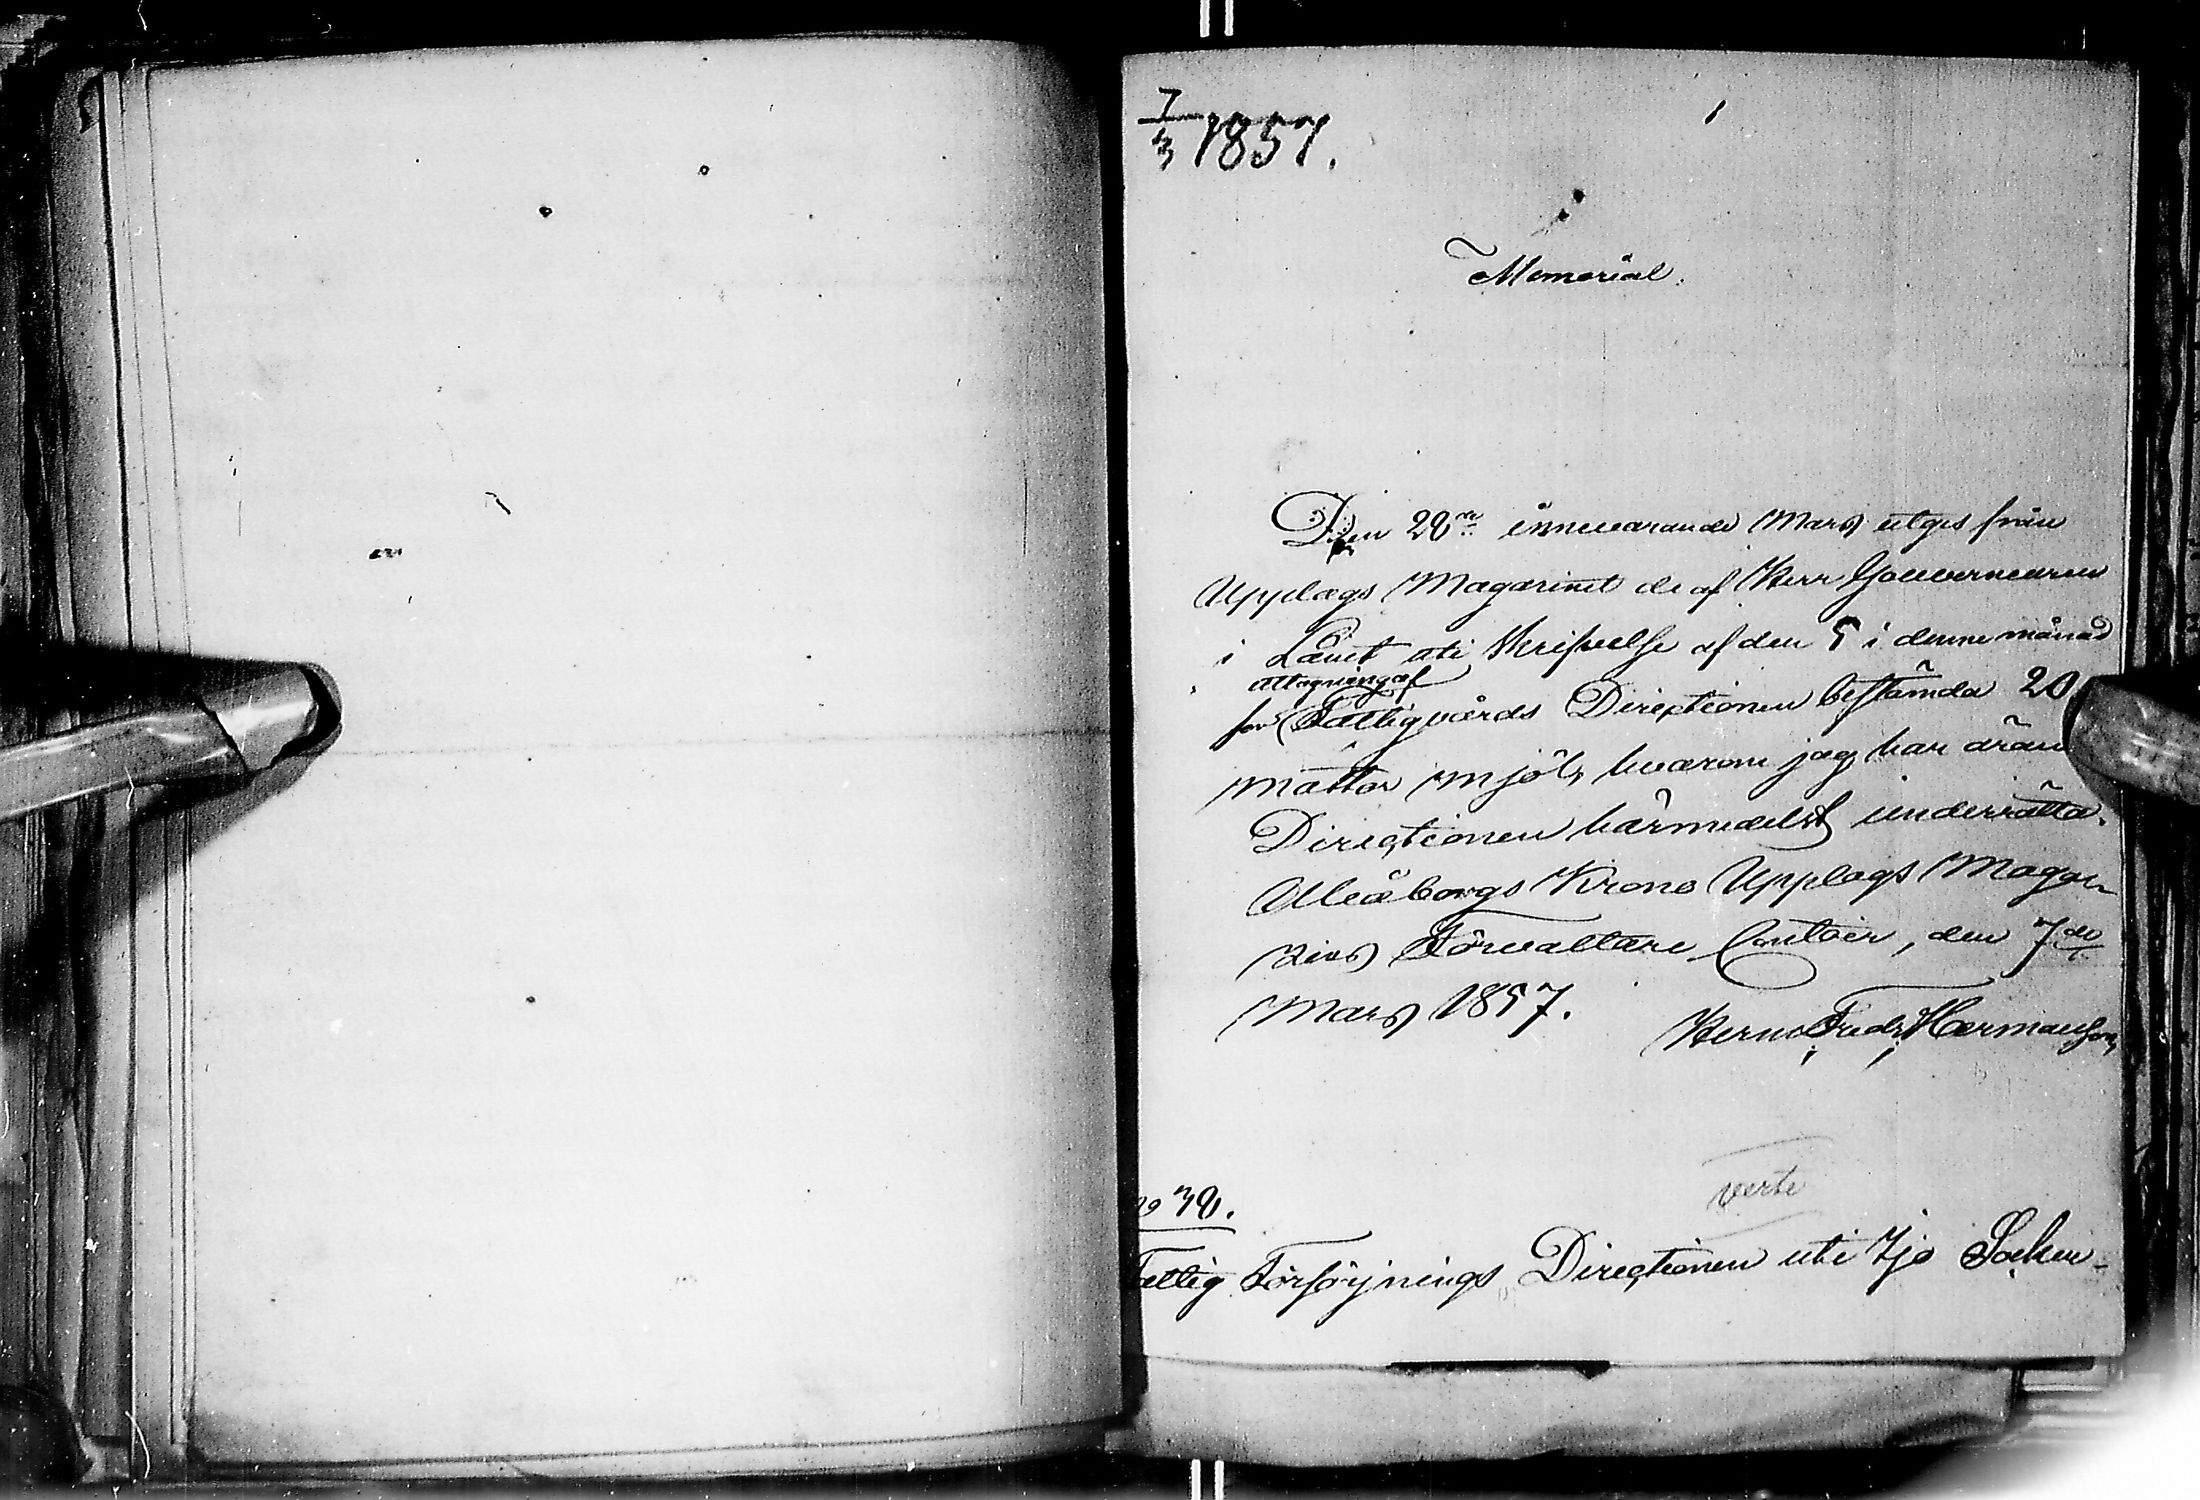 7/3 1857.
Memorial.
Den 28de innevarande Mars utges från
Upplags Magazinet de af Herr Gouverneuren
i Länet uti skrifvelse af den 5 i denne månad
uttagning af
för Fattigvårds Direction bestämda 20
mattor mjöl, hvarom jag har äran
Directionen härmedelst underrätta.
Uleåborgs Krono Upplags Maga-
zins Förvaltare Contoir, den 7de
Mars 1857.
Herm Fredr Hermanson
No 38.
verte
Fattig Försörjnings Directionen uti Ijo Socken